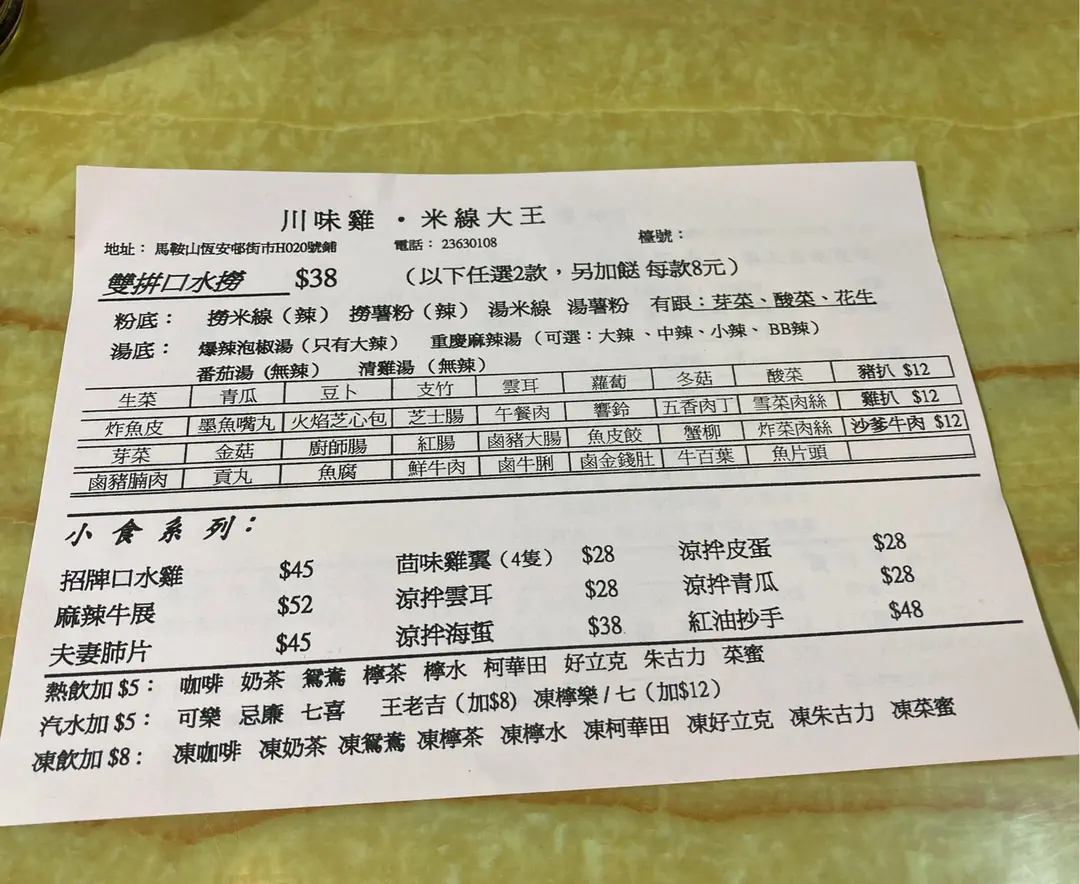 川味雞 · 米線大王
地址： 馬鞍山恆安邨街市H020號鋪 電話： 23630108 檯號：
雙拼口水撈 $38 （以下任選2款，另加餸 每款8元）
粉底： 撈米線（辣） 撈薯粉（辣） 湯米線 湯薯粉 有跟：芽菜、酸菜、花生
湯底： 爆辣泡椒湯（只有大辣） 重慶麻辣湯（可選：大辣、中辣、小辣、BB辣）
番茄湯（無辣） 清雞湯（無辣）
生菜 青瓜 豆卜 支竹 雲耳 蘿蔔 冬菇 酸菜 豬扒 $12
炸魚皮 墨魚嘴丸 火焰芝心包 芝士腸 午餐肉 響鈴 五香肉丁 雪菜肉絲 雞扒 $12
芽菜 金菇 廚師腸 紅腸 鹵豬大腸 魚皮餃 蟹柳 炸菜肉絲 沙爹牛肉 $12
鹵豬腩肉 貢丸 魚腐 鮮牛肉 鹵牛脷 鹵金錢肚 牛百葉 魚片頭
小食系列：
招牌口水雞 $45 茴味雞翼（4隻） $28 涼拌皮蛋 $28
麻辣牛展 $52 涼拌雲耳 $28 涼拌青瓜 $28
夫妻肺片 $45 涼拌海蜇 $38 紅油抄手 $48
熱飲加 $5： 咖啡 奶茶 鴛鴦 檸茶 檸水 柯華田 好立克 朱古力 菜蜜
汽水加 $5： 可樂 忌廉 七喜 王老吉（加$8） 凍檸樂 / 七（加$12）
凍飲加 $8： 凍咖啡 凍奶茶 凍鴛鴦 凍檸茶 凍檸水 凍柯華田 凍好立克 凍朱古力 凍菜蜜